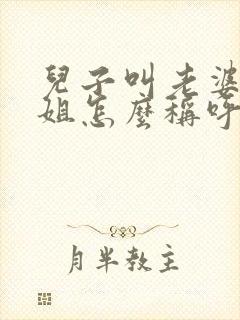 兒子叫老婆
姐怎麼稱呼
月半教主